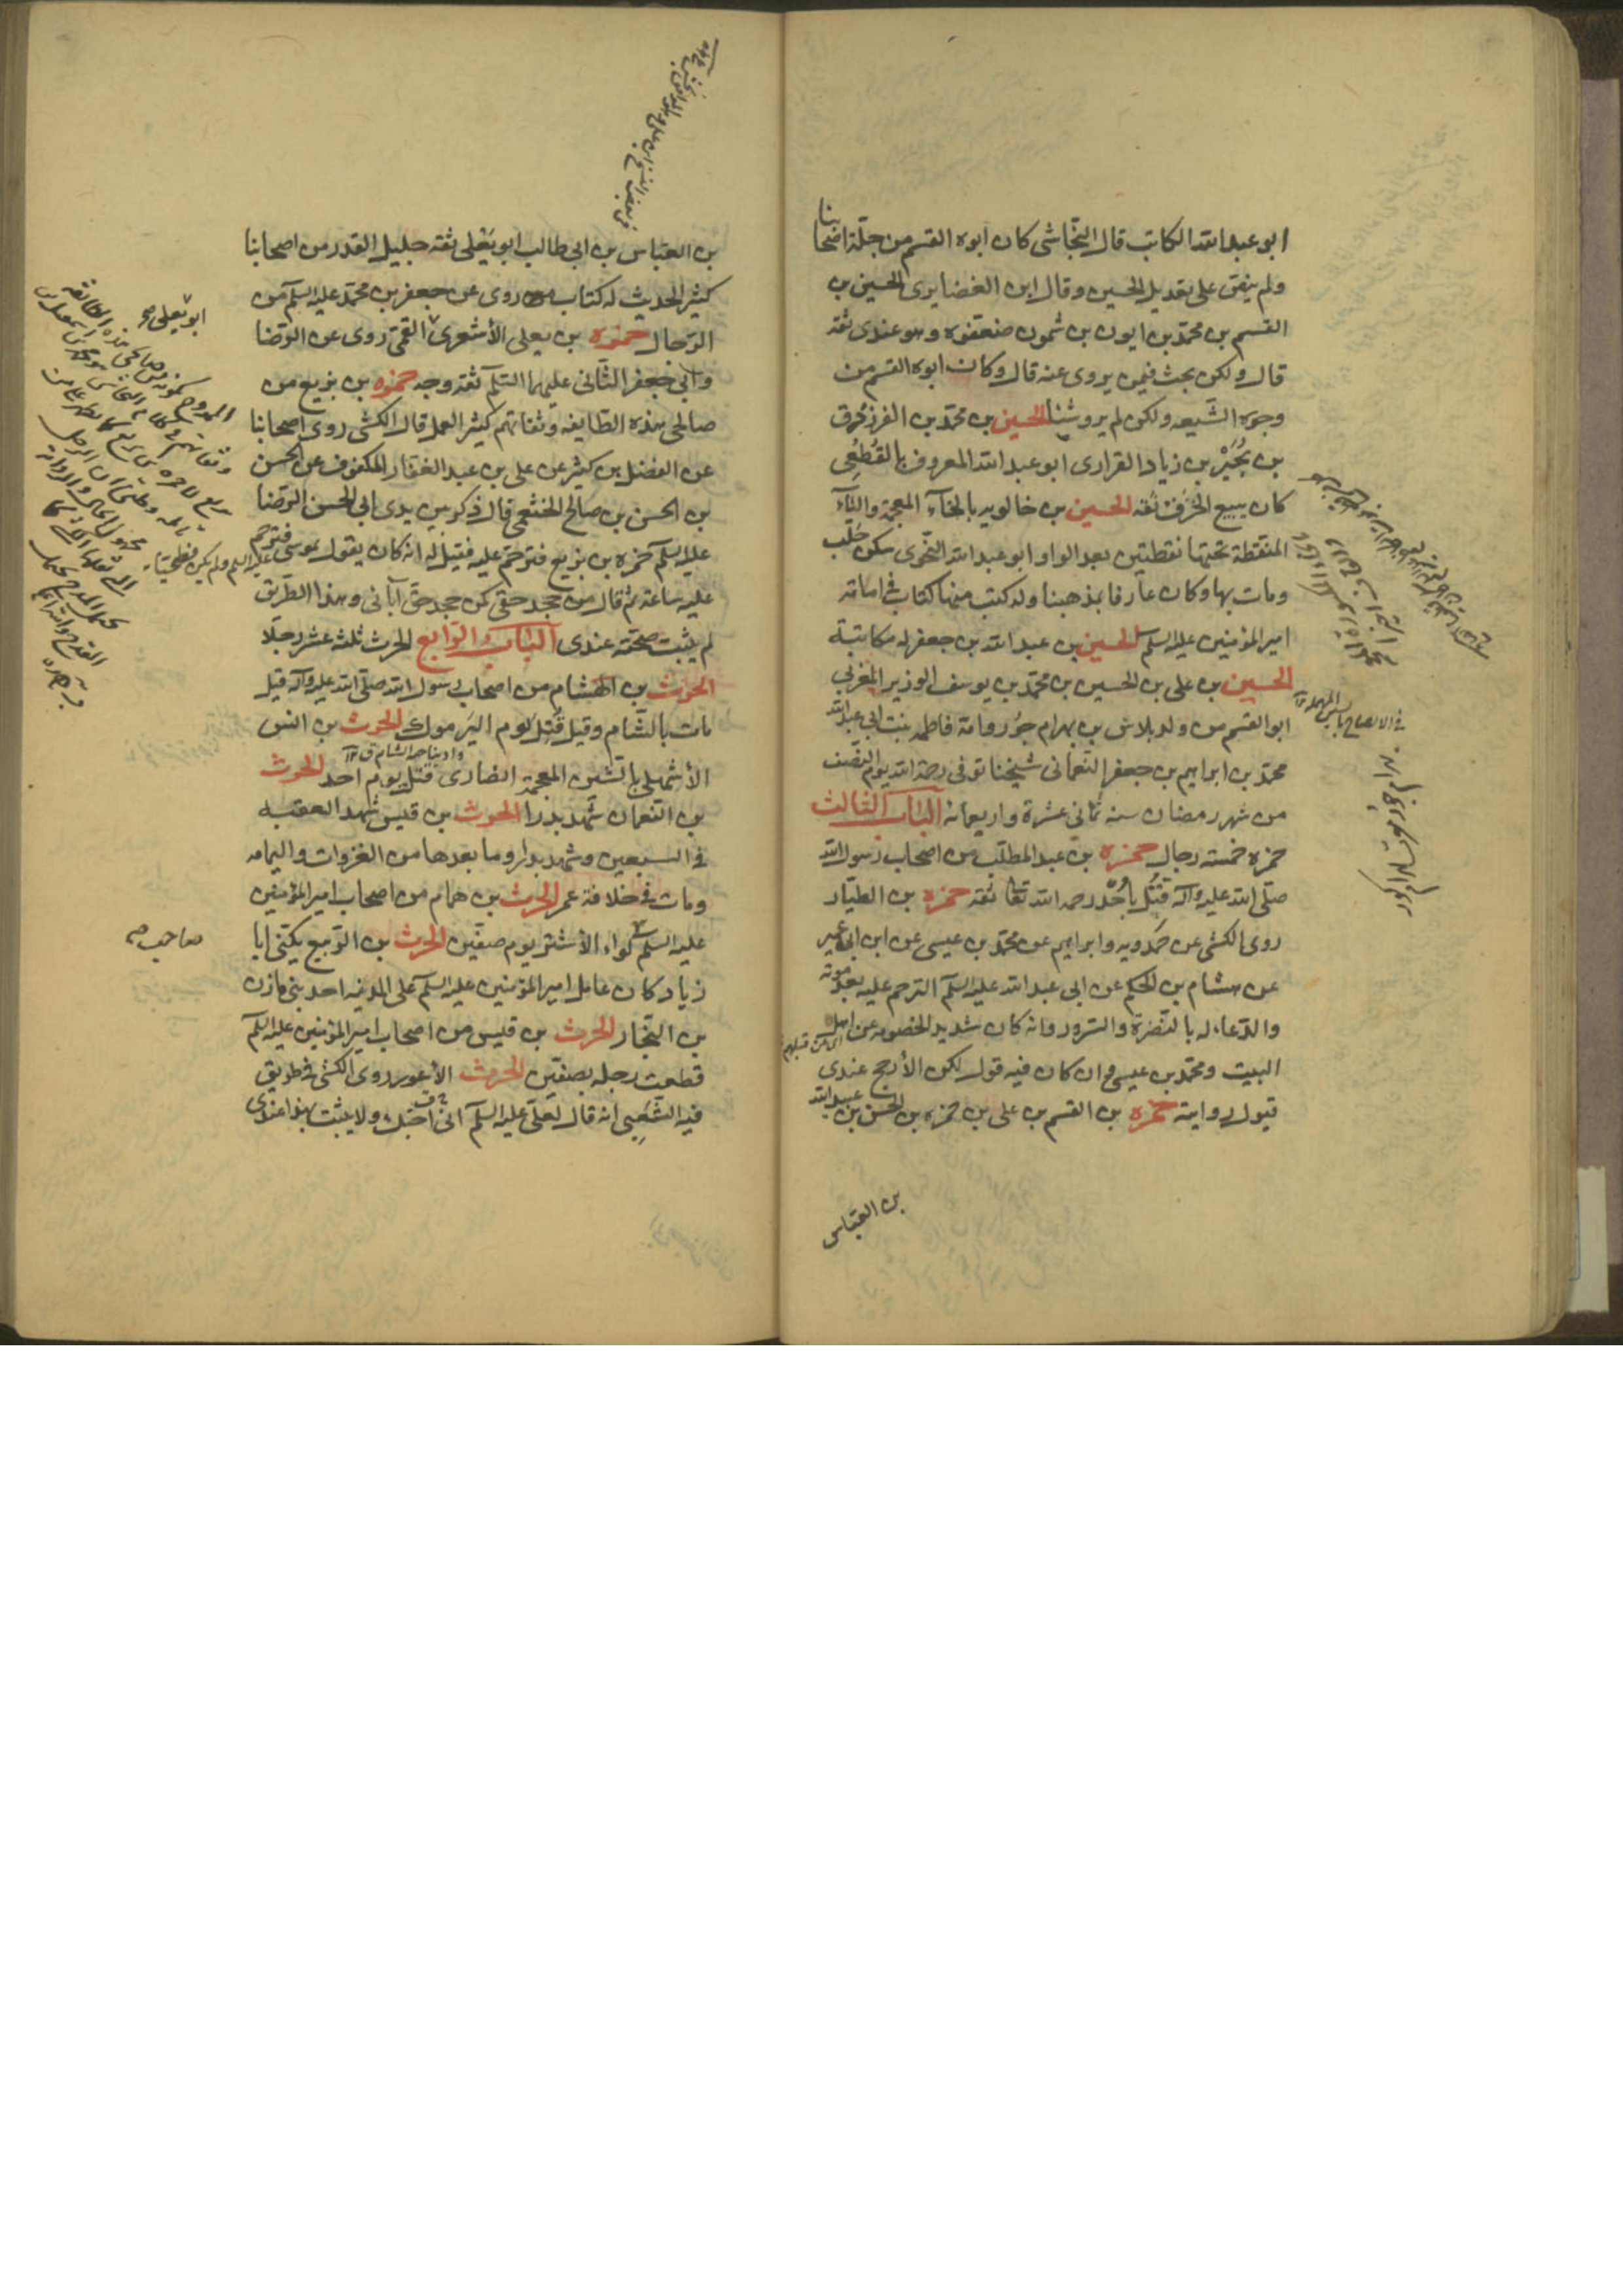 ابو عبد الله الكاتب قال النجاشى كان ابوه القسم من جلة اصحابنا
ولم ينص على تعديل الحسين وقال ابن الغضايرى الحسين بن
القسم بن محمد بن ايوب بن شمون ضعفوه وهو عندى ثقه
قال ولكن بحث فيمن يروى عنه قال وكان ابوه القسم من
وجوه الشيعه ولكن لم يرو شيئا الحسين بن محمد بن الفرزدق
بن بجير بن زياد الفزارى ابو عبد الله المعروف بالقطعى
كان يبيع الخرق ثقه الحسين بن خالويه بالخآء المعجمة واليآء
المنقطة تحتها نقطتين بعد الواو ابو عبد الله النحوى سكن حلب
ومات بها وكان عارفا بمذهبنا وله كتب منها كتاب فى امامة
امير المؤمنين عليه السلم الحسين بن عبد الله بن جعفر له مكاتبة
الحسين بن على بن الحسين بن محمد بن يوسف الوزير المغربى
ابو القسم من ولد بلاش بن بهرام جور وامه فاطمه بنت ابى عبد الله
محمد بن ابراهيم بن جعفر النعمانى شيخنا توفى رحمة الله يوم النصف
من شهر رمضان سنه ثمانى عشرة واربعمائه الباب الثالث
حمزه خمسة رجال حمزه بن عبد المطلب من اصحاب رسول الله
صلى الله عليه وآله قتل بأحد رحمه الله تعا ثقه حمزه بن الطيار
روى الكشى عن حمدويه وابراهيم عن محمد بن عيسى عن ابن ابى عمير
عن هشام بن الحكم عن ابى عبد الله عليه السلم الترحم عليه بعد موته
والدعاء له بالنضرة والسرور وانه كان شديد الخصومه عن اهل
البيت ومحمد بن عيسى وان كان فيه قول لكن الأرجح عندى
قبول روايته حمزه بن القسم بن على بن حمزه بن الحسن بن عبيد الله
بن العباس
بن العباس بن ابى طالب ابو يعلى ثقه جليل القدر من اصحابنا
كثير الحديث له كتاب من روى عن جعفر بن محمد عليه السلم من
الرجال حمزه بن يعلى الأشعرى القمى روى عن الرضا
وابى جعفر الثانى عليهما السلم ثقه وجه حمزه بن بزيع من
صالحى هذه الطايفه وثقاتهم كثير العمل قال الكشى روى اصحابنا
عن الفضل بن كثير عن على بن عبد الغفار المكفوف عن الحسن
بن الحسن بن صالح الخثعمى قال ذكر بين يدى ابى الحسن الرضا
عليه السلم حمزه بن بزيع فترحم عليه فقيل له انه كان يقول بموسى فترحم
عليه ساعة ثم قال من جحد حقى كمن جحد حق آبائى وهذا الطريق
لم يثبت صحته عندى الباب الرابع الحرث ثلثة عشر رجلا
الحرث بن الهشام من اصحاب رسول الله صلى الله عليه وآله قيل
مات بالشام وقيل قتل يوم اليرموك الحرث بن انس
الأشهلى بالشين المعجمة انصارى قتل يوم احد الحرث
بن النعمان شهد بدرا الحرث بن قيس شهد العقبه
فى السبعين وشهد بدرا وما بعدها من الغزوات واليمامه
ومات فى خلافة عمر الحرث بن همام من اصحاب امير المؤمنين
عليه السلم لواء الأشتر يوم صفين الحرث بن الربيع يكنى ابا
زياد كان عامل امير المؤمنين عليه السلم على المدينه احد بنى مازن
بن النجار الحرث بن قيس من اصحاب امير المؤمنين عليه السلم
قطعت رجله بصفين الحرث الأعور روى الكشى فى طريق
فيه الشعبى انه قال لعلى عليه السلم انى احبك ولا يثبت بهذا عندى
ابو يعلى
صاحب